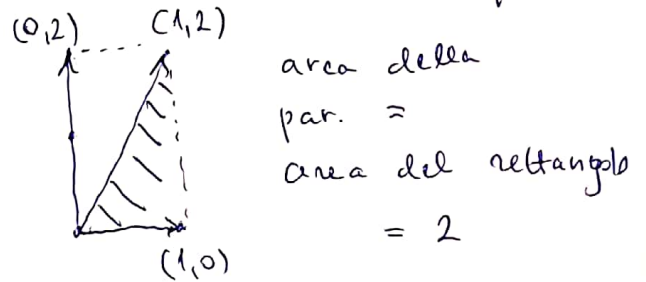 (0,2) (1,2)
area della
par. =
area del rettangolo
= 2
(1,0)